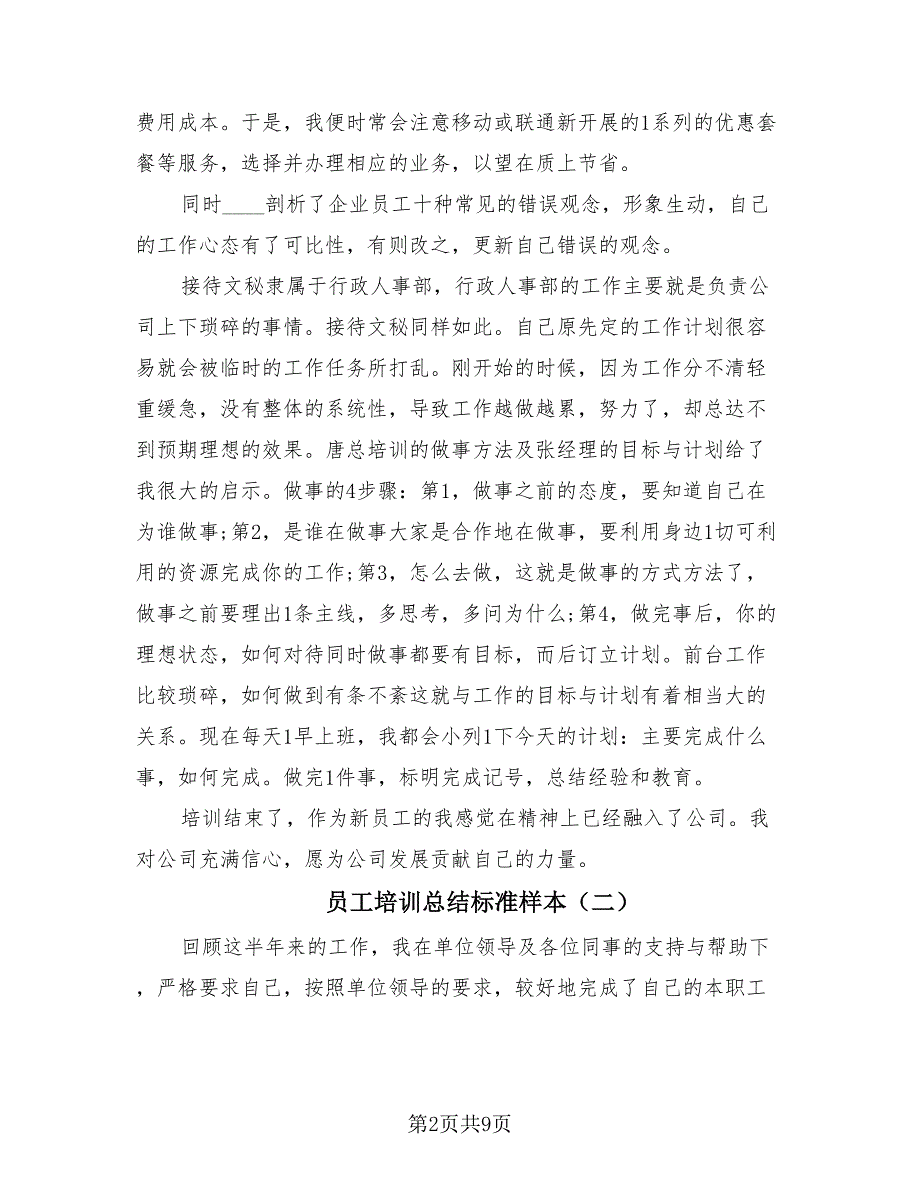 费用成本。于是，我便时常会注意移动或联通新开展的1系列的优惠套
餐等服务，选择并办理相应的业务，以望在质上节省。
同时____剖析了企业员工十种常见的错误观念，形象生动，自己
的工作心态有了可比性，有则改之，更新自己错误的观念。
接待文秘隶属于行政人事部，行政人事部的工作主要就是负责公
司上下琐碎的事情。接待文秘同样如此。自己原先定的工作计划很容
易就会被临时的工作任务所打乱。刚开始的时候，因为工作分不清轻
重缓急，没有整体的系统性，导致工作越做越累，努力了，却总达不
到预期理想的效果。唐总培训的做事方法及张经理的目标与计划给了
我很大的启示。做事的4步骤：第1，做事之前的态度，要知道自己在
为谁做事;第2，是谁在做事大家是合作地在做事，要利用身边1切可利
用的资源完成你的工作;第3，怎么去做，这就是做事的方式方法了，
做事之前要理出1条主线，多思考，多问为什么;第4，做完事后，你的
理想状态，如何对待同时做事都要有目标，而后订立计划。前台工作
比较琐碎，如何做到有条不紊这就与工作的目标与计划有着相当大的
关系。现在每天1早上班，我都会小列1下今天的计划：主要完成什么
事，如何完成。做完1件事，标明完成记号，总结经验和教育。
培训结束了，作为新员工的我感觉在精神上已经融入了公司。我
对公司充满信心，愿为公司发展贡献自己的力量。
员工培训总结标准样本（二）
回顾这半年来的工作，我在单位领导及各位同事的支持与帮助下
，严格要求自己，按照单位领导的要求，较好地完成了自己的本职工
第2页共9页